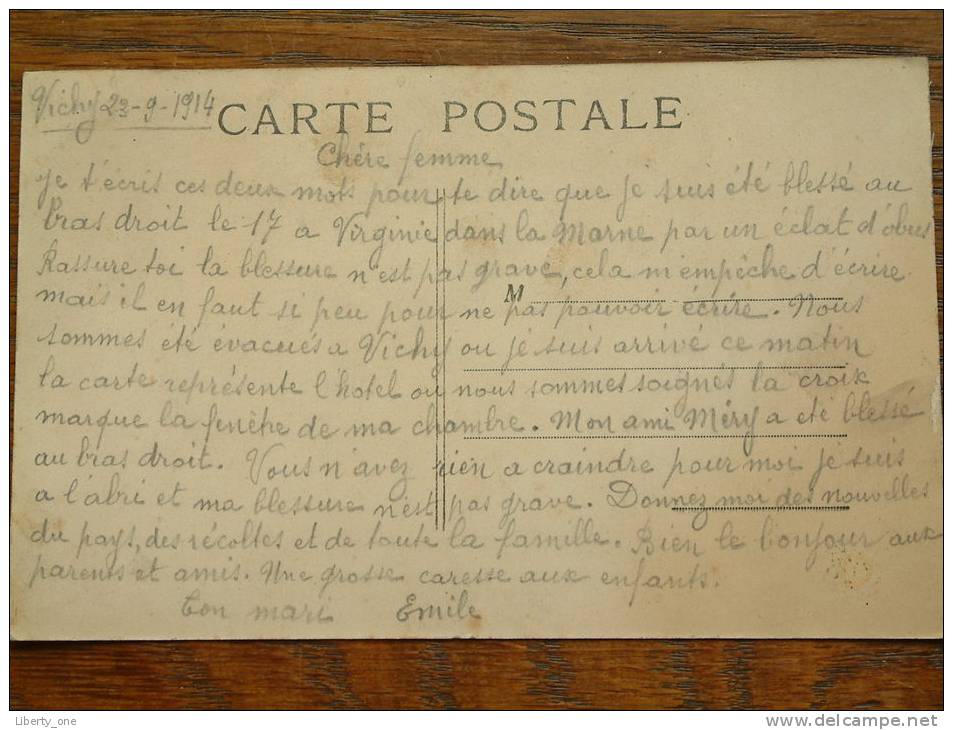 Vichy 23-9-1914
CARTE POSTALE
Chère femme
Je t'écris ces deux mots pour te dire que je suis été blessé au
bras droit le 17 a Virginie dans la Marne par un éclat d'obus
Rassure toi la blessure n'est pas grave, cela m'empêche d'écrire
M
mais il en faut si peu pour ne pas pouvoir écrire. Nous
sommes été évacués a Vichy ou je suis arrivé ce matin
la carte représente l'hotel ou nous sommes soignés la croix
marque la fenêtre de ma chambre. Mon ami Méry a été blessé
au bras droit. Vous n'avez rien a craindre pour moi je suis
a l'abri et ma blessure n'est pas grave. Donnez moi des nouvelles
du pays, des récoltes et de toute la famille. Bien le bonjour aux
parents et amis. Une grosse caresse aux enfants.
Ton mari Emile
Liberty_one
www.delcampe.net